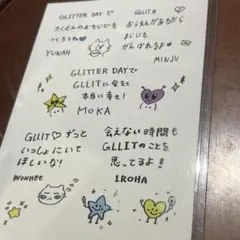 GLITTER DAYで
たくさんのおもいでを
つくろうね♥
YUNAH
GLLITの
おうえんがあるから
まいにち
がんばれるよ♥
MINJU
GLITTER DAYで
GLLITに会えて
本当に幸せ!
MOKA
GLLIT♡ずっと
いっしょにいて
ほしいな!
WONHEE
会えない時間も
GLLITのことを
思ってるよ!
IROHA